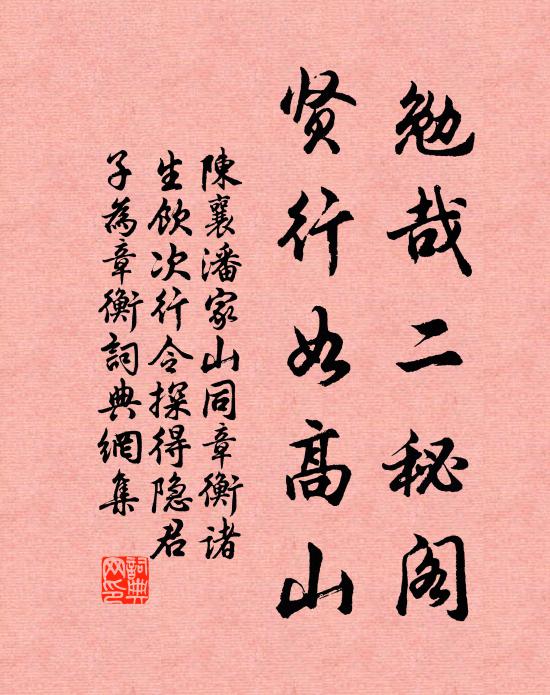 勉哉二秘阁
贤行如高山
陳襄潘家山同章衡诸
生飲次行令探得隐君
子為章衡詞典網集
詞典
网印